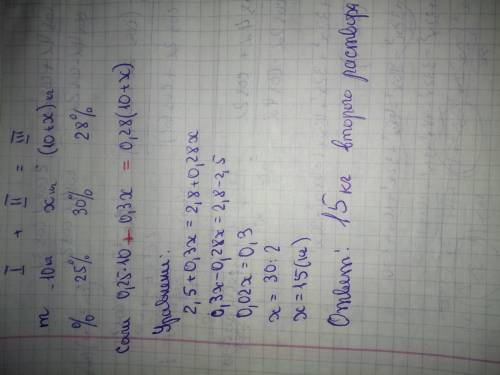 I + II = III
m - 10 кг x кг (10+x) кг
% 25% 30% 28%
Соли 0,25·10 + 0,3x = 0,28(10+x)
Уравнение:
2,5+0,3x = 2,8+0,28x
0,3x-0,28x = 2,8-2,5
0,02x = 0,3
x = 30:2
x = 15(кг)
Ответ: 15 кг второго раствора